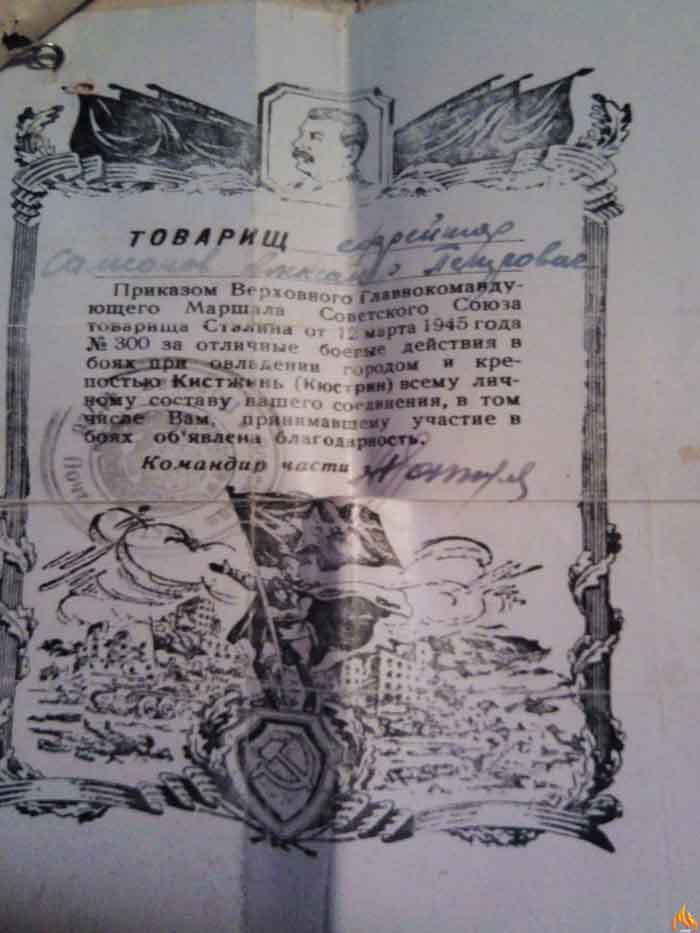 ТОВАРИЩ ефрейтор
Самсонов Александр Петрович
Приказом Верховного Главнокоманду-
ющего Маршала Советского Союза
товарища Сталина от 12 марта 1945 года
№ 300 за отличные боевые действия в
боях при овладении городом и кре-
постью Кистжень (Кюстрин) всему лич-
ному составу вашего соединения, в том
числе Вам, принимавшему участие в
боях об'явлена благодарность.
Командир части